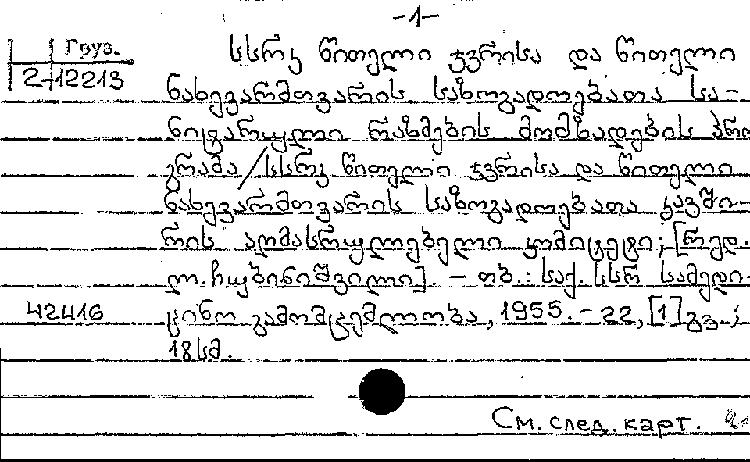 -1-
Груз.
2-12213
სსრკ წითელი ჯვრისა და წითელი
ნახევარმთვარის საზოგადოებათა სა-
ნიტარული რაზმების მომზადების პრო
გრამა / სსრკ წითელი ჯვრისა და წითელი
ნახევარმთვარის საზოგადოებათა კავში-
რის აღმასრულებელი კომიტეტი; [რედ.
ლ. ჩუბინიშვილი]. - თბ.: საქ. სსრ სამედი-
42416 ცინო გამომცემლობა, 1955. - 22, [1] გვ.;
18 სმ.
См. след. карт.